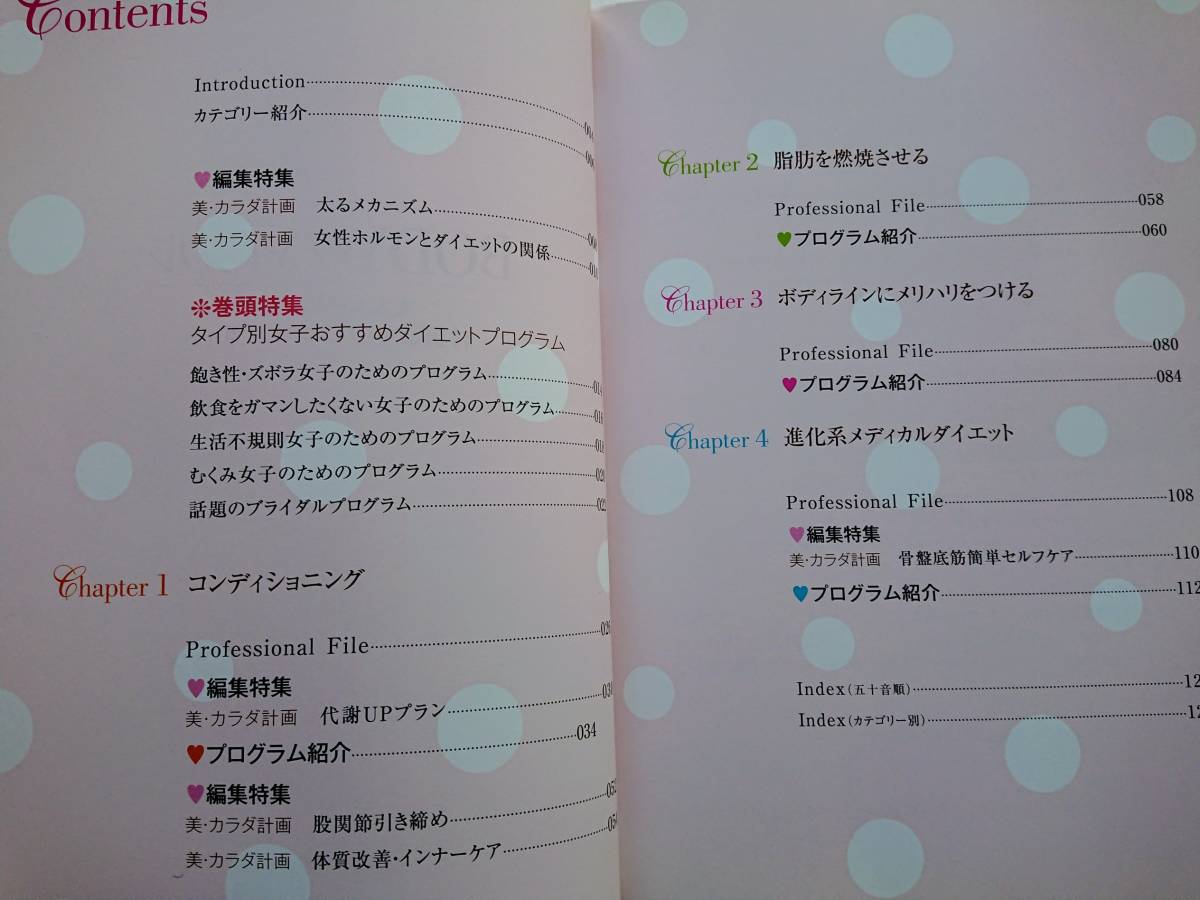 Contents
Introduction
カテゴリー紹介
♥編集特集
美・カラダ計画 太るメカニズム
美・カラダ計画 女性ホルモンとダイエットの関係
❊巻頭特集
タイプ別女子おすすめダイエットプログラム
飽き性・ズボラ女子のためのプログラム
飲食をガマンしたくない女子のためのプログラム
生活不規則女子のためのプログラム
むくみ女子のためのプログラム
話題のブライダルプログラム
Chapter 1 コンディショニング
Professional File
♥編集特集
美・カラダ計画 代謝UPプラン
♥プログラム紹介 034
♥編集特集
美・カラダ計画 股関節引き締め
美・カラダ計画 体質改善・インナーケア
Chapter 2 脂肪を燃焼させる
Professional File 058
♥プログラム紹介 060
Chapter 3 ボディラインにメリハリをつける
Professional File 080
♥プログラム紹介 084
Chapter 4 進化系メディカルダイエット
Professional File 108
♥編集特集
美・カラダ計画 骨盤底筋簡単セルフケア 110
♥プログラム紹介 112
Index（五十音順）
Index（カテゴリー別）